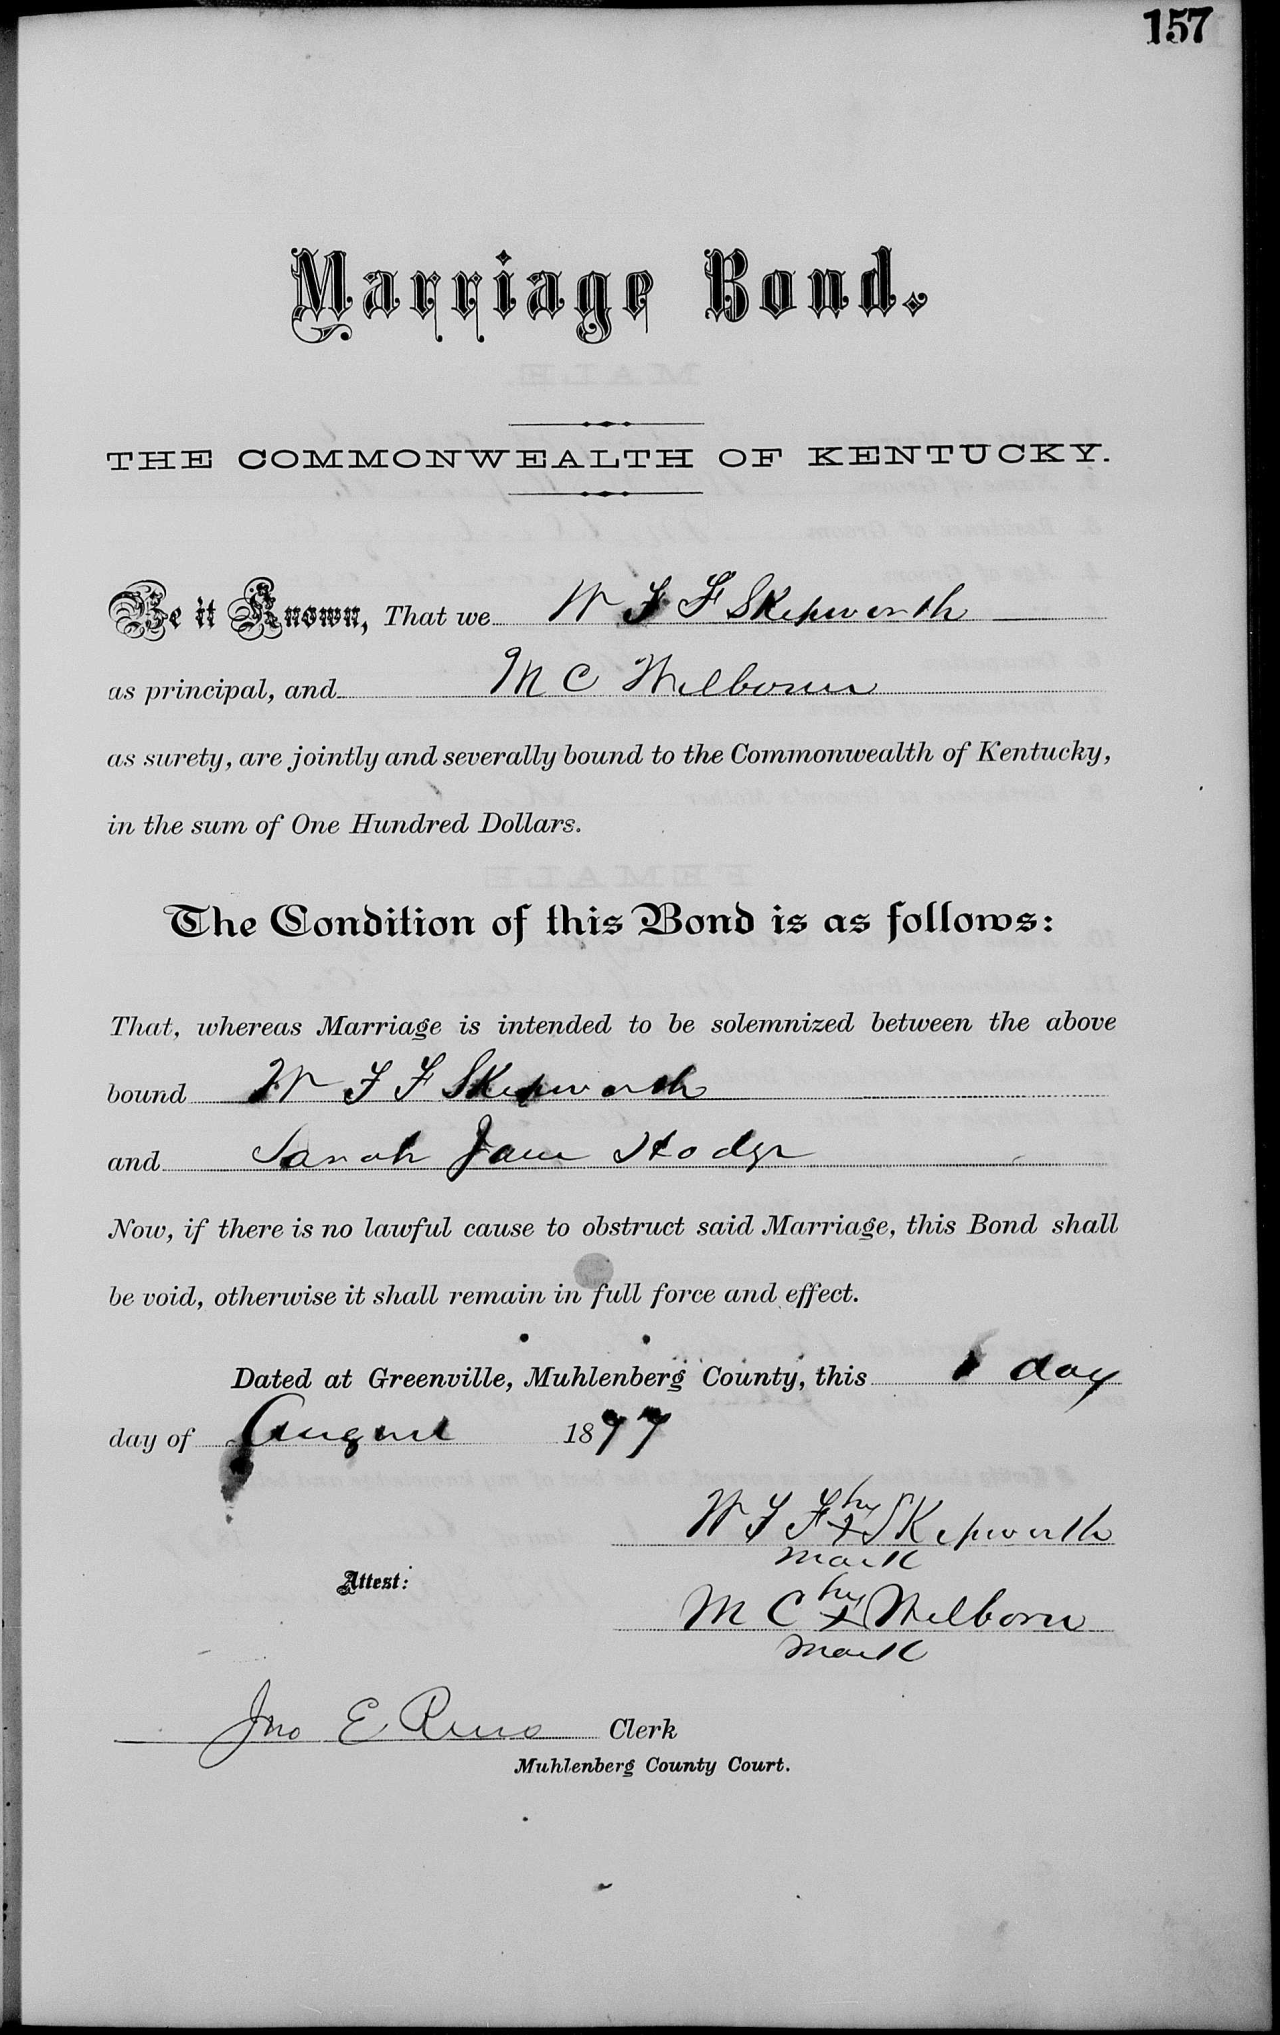 157
Marriage Bond.
THE COMMONWEALTH OF KENTUCKY.
Be it Known, That we W F F Skepworth
as principal, and M C Welborn
as surety, are jointly and severally bound to the Commonwealth of Kentucky,
in the sum of One Hundred Dollars.
The Condition of this Bond is as follows:
That, whereas Marriage is intended to be solemnized between the above
bound W F F Skepworth
and Sarah Jane Hodge
Now, if there is no lawful cause to obstruct said Marriage, this Bond shall
be void, otherwise it shall remain in full force and effect.
Dated at Greenville, Muhlenberg County, this day
day of August 1877
W F F his x Skepworth
mark
Attest:
M C his x Welborn
mark
Jno E Reno Clerk
Muhlenberg County Court.